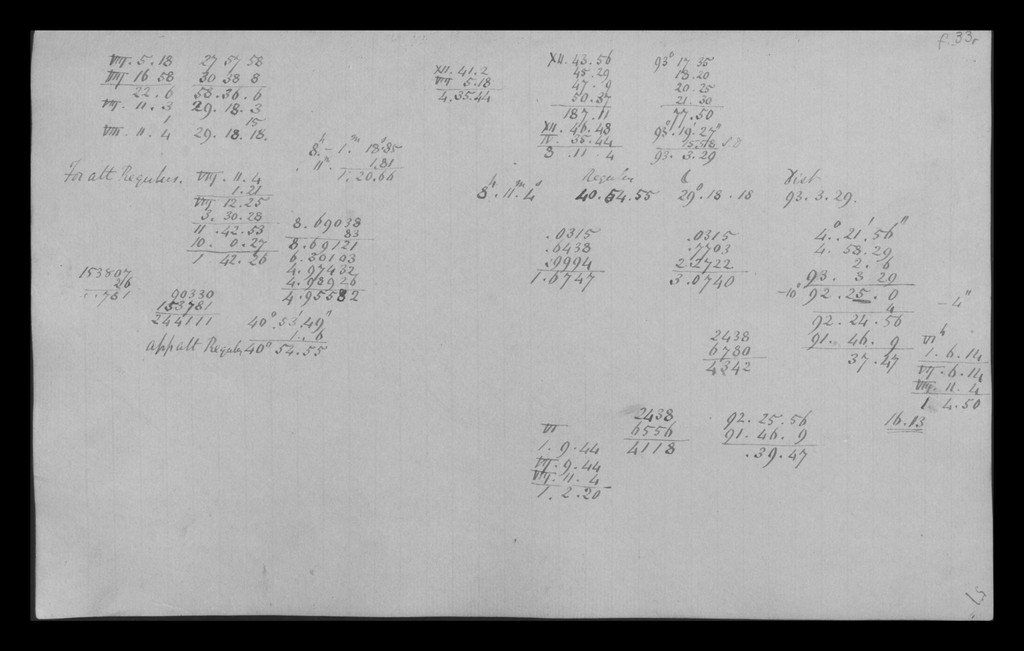 f 33r
VIII. 5. 18 27 57 58
VIII 16 58 30 38 8
22. 6 58. 36. 6
VIII. 11. 3 29. 18. 3
1 15
VIII. 11. 4 29. 18. 18.
h m s
8. - 1. 18.85
11. 1.81
1. 20.66
XII. 41. 2
VIII 5. 18
4. 35. 44
XII. 43. 56 93° 17 35
45. 29 18. 20
47. 9 20. 25
50. 37 21. 30
187. 11 77. 50
XII. 46. 48 93° 19' 27"
IV. 35. 44 15. 58
8 . 11 . 4 93. 3. 29
For alt Regulus. VIII. 11. 4
1. 21
VIII 12. 25
3. 30. 28
11. 42. 53
10. 0. 27
1 42. 26
8. 69038
83
8. 69121
6. 30103
4. 97432
4. 98926
4. 95582
153807
26
781
90330
153781
244111
40° 53' 49"
1. 6
app alt Regulus 40° 54. 55
Regulus Dist
8h. 11m. 4s 40. 54. 55 29° . 18 . 18 93. 3. 29.
.0315 .0315 4° 21' 56"
.6438 .7703 4. 58. 29
.9994 2.2722 2. 6
1.6747 3.0740 93. 3 29
-10" 92. 25. 0 - 4"
4
92. 24. 56
91. 46. 9
37. 47
2438
6780
4342
VI h
1. 6. 14
VII. 6. 14
VIII. 11. 4
1 4. 50
16. 13
VI
1. 9. 44
VII. 9. 44
VIII. 11. 4
1. 2. 20
2438
6556
4118
92. 25. 56
91. 46. 9
. 39. 47